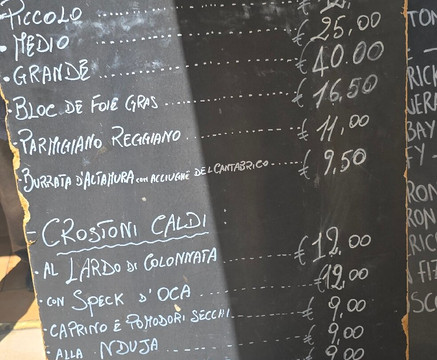 PICCOLO ........ €
• MEDIO ........ € 25,00
• GRANDE ........ € 40.00
BLOC DE FOIE GRAS ........ € 16,50
• PARMIGIANO REGGIANO ........ € 11,00
• BURRATA D'ALTAMURA CON ACCIUGHE DEL CANTABRICO ... € 9,50
- CROSTONI CALDI :
• AL LARDO DI COLONNATA ........ € 12,00
• CON SPECK D'OCA ........ € 12,00
• CAPRINO E POMODORI SECCHI ........ € 9,00
• ALLA NDUJA ........ € 9,00
€ 9,00